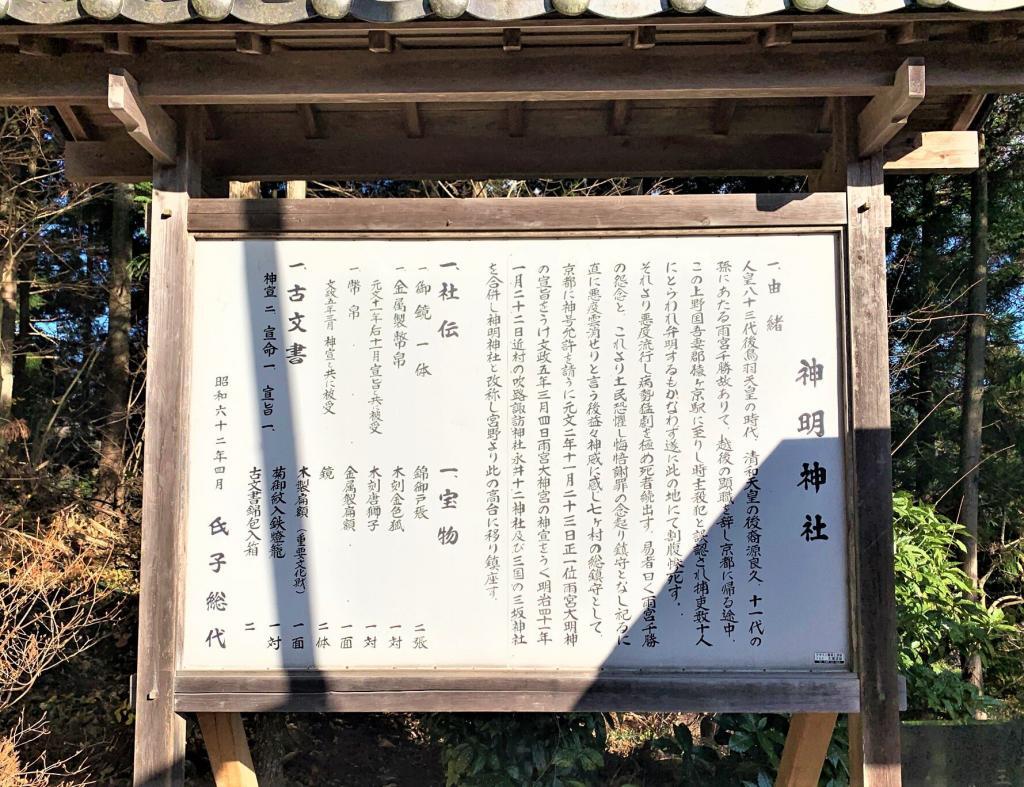 神明神社
一、由緒
人皇八十三代後鳥羽天皇の時代、清和天皇の後裔源良久、十一代の
孫にあたる雨宮千勝故ありて、越後の顕職を辞し京都に帰る途中、
この上野国吾妻郡猿ヶ京駅に至りし時主殺犯と誤認され捕吏数十人
にとらわれ弁明するもかなわず遂に此の地にて割腹惨死す。
それより悪疫流行し病勢猛劇を極め死者続出す、易者曰く雨宮千勝
の怨念と、これより土民恐懼し悔悟謝罪の念起り鎮守となし祀るに
直に悪疫雲消せりと言う後益々神威に感じ七ヶ村の総鎮守として、
京都に神号允許を請うに元文二年十一月二十三日正一位雨宮大明神
の宣旨をうけ文政五年三月四日雨宮大神宮の神宣をうく明治四十一年
一月二十二日近村の吹路諏訪神社永井十二神社及び三国の三坂神社
を合併し神明神社と改称し宮野より此の高台に移り鎮座す。
一、社伝
一、御鏡 一体
一、金属製幣帛
元文二年后十一月宣旨と共被受
一、幣帛
文政五年三月 神宣と共に被受
一、古文書
神宣二、宣命一、宣旨一、
一、宝物
錦御戸張 二張
木刻金色狐 一対
木刻唐獅子 一対
金属製扁額 一面
鏡 二体
木製扁額(重要文化財) 一面
菊御紋入鉄燈籠 一対
古文書錦包入箱 二
昭和六十二年四月 氏子総代